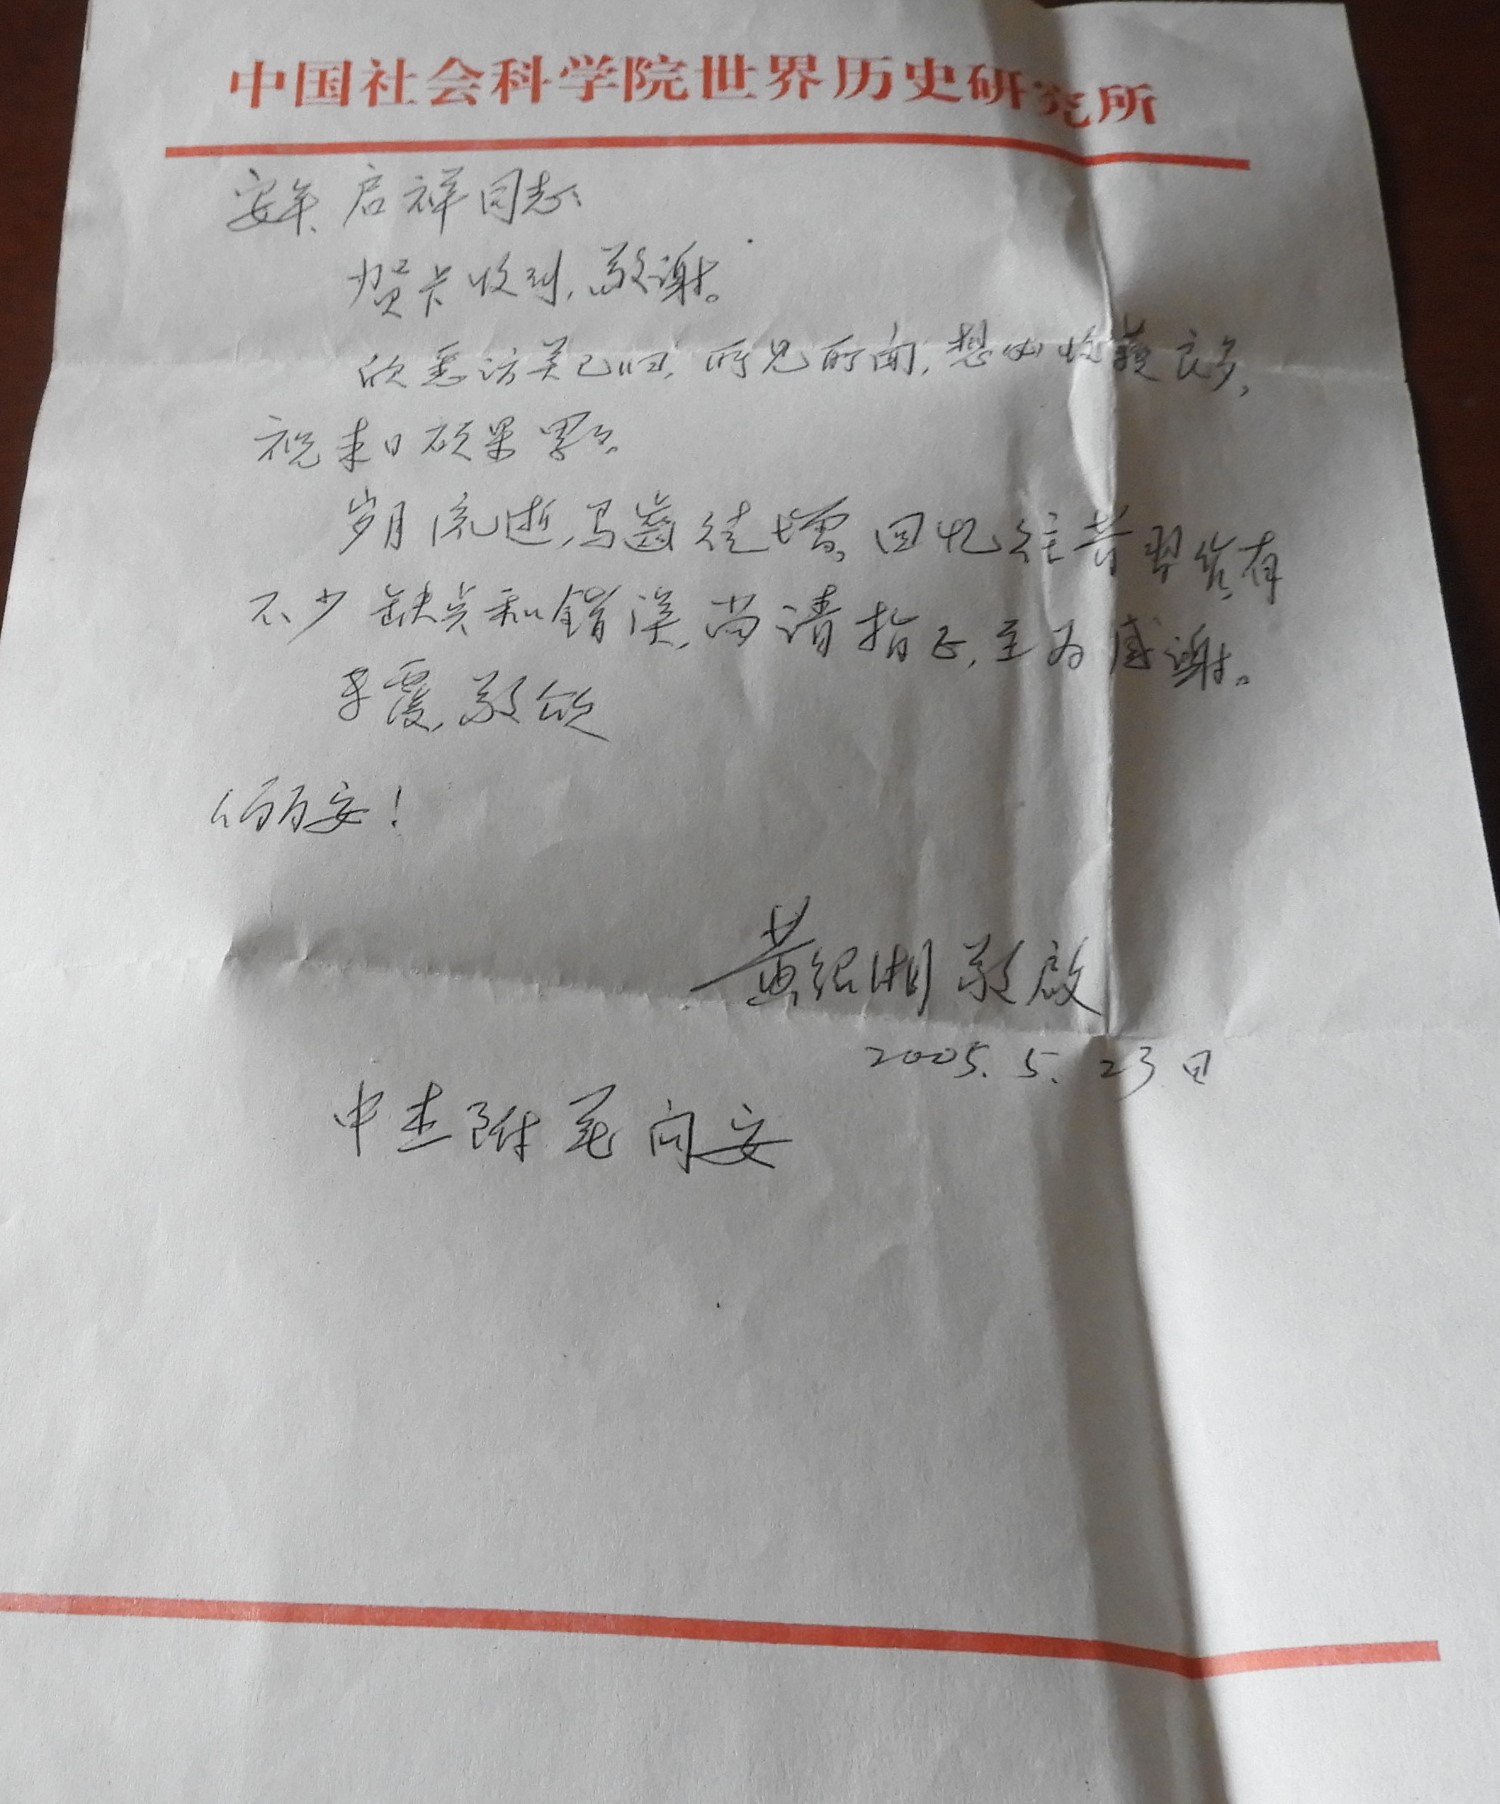 中国社会科学院世界历史研究所
安年、启祥同志：
贺卡收到，敬谢。
欣悉访美已归，所见所闻，想必收获良多，
祝来日硕果累累。
岁月流逝，马齒徒增。回忆往昔
不少缺点和错误，尚请指正，至为感谢。
专覆，敬颂
俪安！
黄绍湘敬啟
2005.5.23日
中杰附笔问安